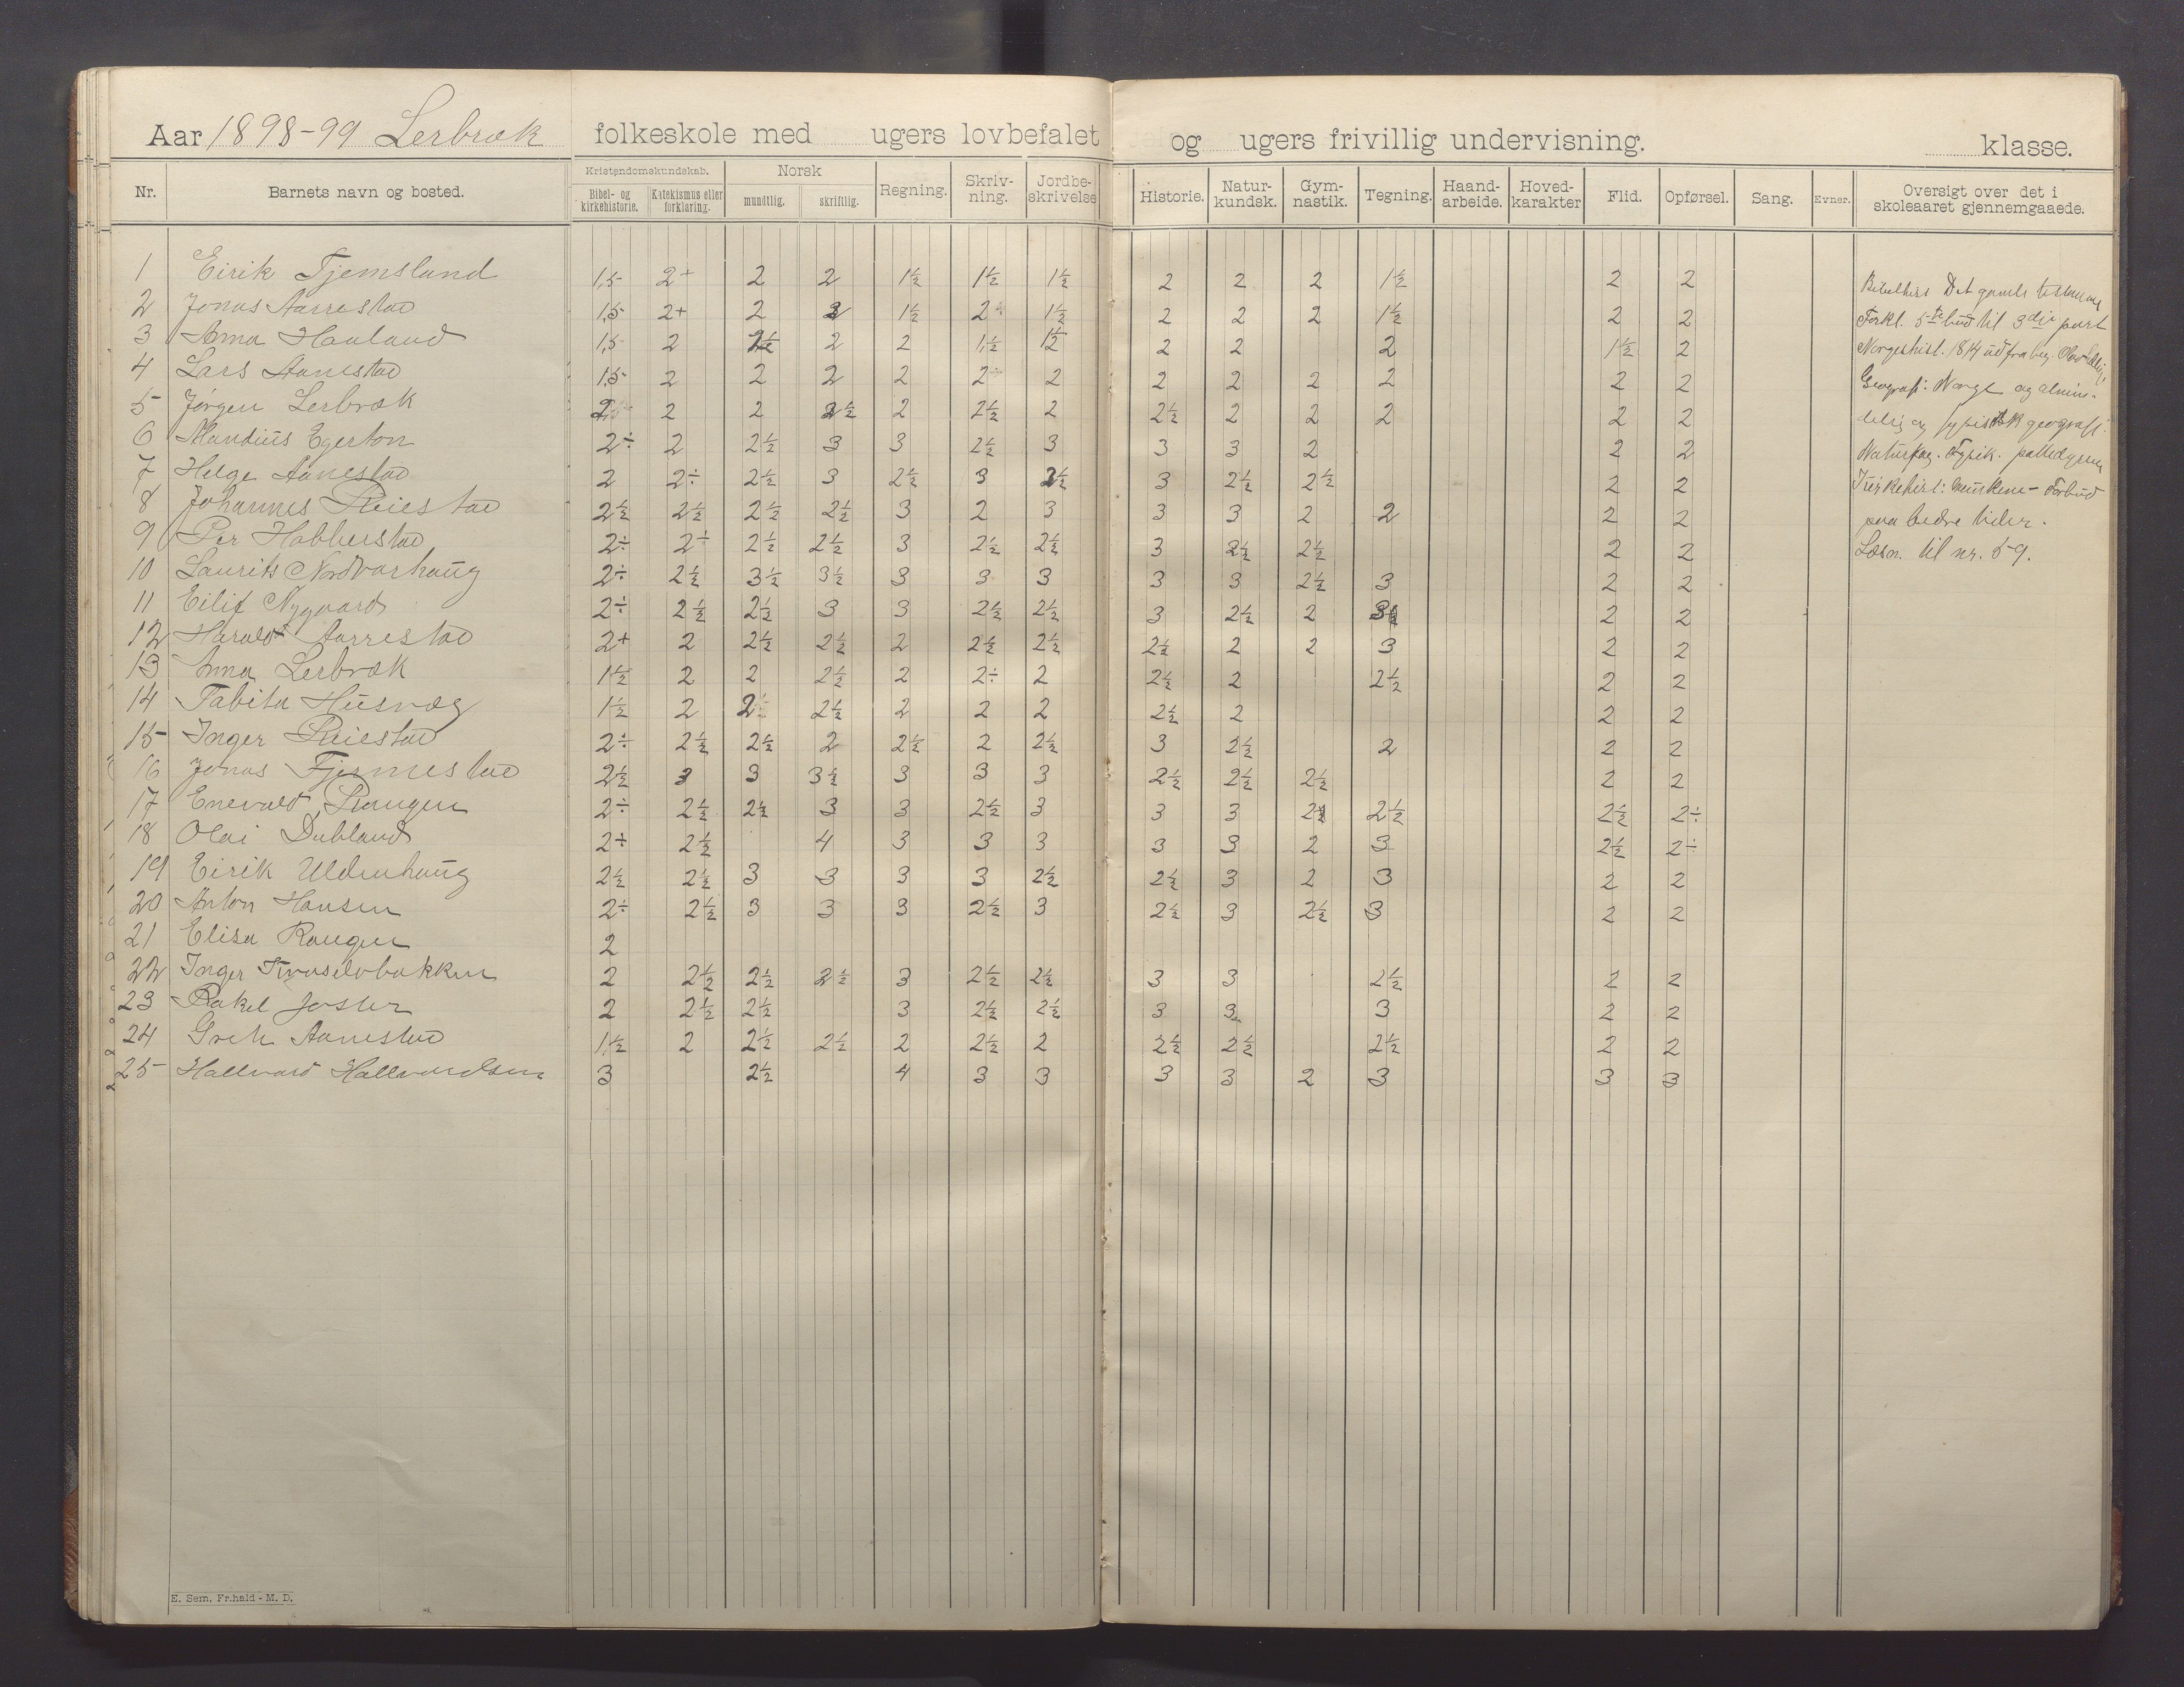 Aar 1898-99 Lerbræk folkeskole med ugers lovbefalet og ugers frivillig undervisning. klasse.
Nr. Barnets navn og bosted. Kristendomskundskab. Bibel- og kirkehistorie. Katekismus eller forklaring. Norsk mundtlig. skriftlig. Regning. Skriv-ning. Jordbe-skrivelse Historie. Natur-kundsk. Gym-nastik. Tegning. Haand-arbeide. Hoved-karakter Flid. Opførsel. Sang. Evner. Oversigt over det i skoleaaret gjennemgaaede.
1 Eirik Tjemsland 1,5 2+ 2 2 1½ 1½ 1½ 2 2 2 1½ 2 2
2 Jonas Aarrestad 1,5 2+ 2 2 1½ 2 1½ 2 2 2 1½ 2 2
3 Anna Haaland 1,5 2 2½ 2 2 1½ 1½ 2 2 2 1½ 2
4 Lars Aanestad 1,5 2 2 2 2 2 2 2 2 2 2 2 2
5 Jørgen Lerbræk 2 2 2 2½ 2 2½ 2 2½ 2 2 2 2 2
6 Mandius Egerton 2÷ 2 2½ 3 3 2½ 3 3 3 2 2 2
7 Helge Aanestad 2 2÷ 2½ 3 2½ 3 2½ 3 2½ 2½ 2 2
8 Johannes Reiestad 2½ 2½ 2½ 2½ 3 2 3 3 3 2 2 2 2
9 Per Hobberstad 2÷ 2÷ 2½ 2½ 3 2½ 2½ 3 2½ 2½ 2 2
10 Laurits Nordvarhaug 2÷ 2½ 3½ 3½ 3 3 3 3 3 2½ 3 2 2
11 Eilif Nygaard 2÷ 2½ 2½ 3 3 2½ 2½ 3 2½ 2 3 2 2
12 Harald Aarrestad 2+ 2 2½ 2½ 2 2½ 2½ 2½ 2 2 3 2 2
13 Anna Lerbræk 1½ 2 2 2½ 2 2÷ 2 2½ 2 2½ 2 2
14 Tabita Husvæg 1½ 2 2 2½ 2 2 2 2½ 2 2 2
15 Inger Reiestad 2÷ 2½ 2½ 2 2½ 2 2½ 3 2½ 2 2 2
16 Jonas Fjermestad 2½ 3 3 3½ 3 3 3 2½ 2½ 2½ 2 2
17 Enevald Raugen 2÷ 2½ 2½ 3 3 2½ 3 3 3 2 2½ 2½ 2÷
18 Olai Dubland 2÷ 2½ 4 3 3 3 3 3 2 3 2½ 2÷
19 Eirik Uldenhaug 2½ 2½ 3 3 3 3 2½ 2½ 3 2 3 2 2
20 Anton Hansen 2÷ 2½ 3 3 3 2½ 3 2½ 3 2½ 3 2 2
21 Elisa Raugen 2
22 Inger 2 2½ 2½ 2½ 3 2½ 2½ 3 3 2½ 2 2
23 Rakel Joster 2 2½ 2½ 3 2½ 2½ 3 3 3 2 2
24 Grete Aanestad 1½ 2 2½ 2½ 2 2½ 2 2½ 2½ 2½ 2 2
25 Hallvard Hallvardsen 3 2½ 4 3 3 3 3 2 3 3 3
Bibelhist Det gamle testamen
Forkl. 5te bud til 3dje part
Norgeshist. 1814 ud fra beg.
Geografi: Norge og almin-
delig og fysisk geografi.
Naturfag. Fysik.
Kirkehist: - Forbud
paa bedre tider.
Læsn. til nr. 59.
E. Sem, Fr.hald - M. D.